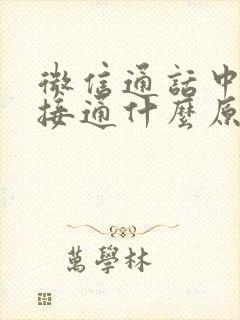 微信通話中
接通什麼原
萬學林